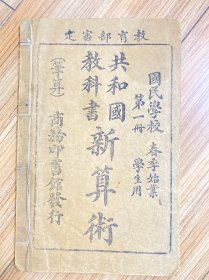 教育部審定
國民學校 春季始業
第一冊 學生用
共和國
教科書
新算術
(筆算)
商務印書館發行